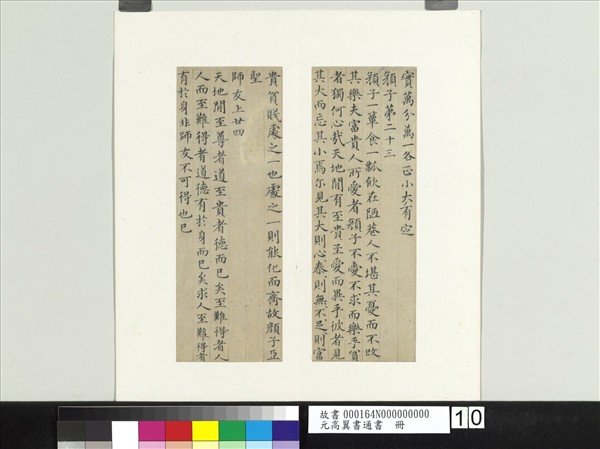 實萬分萬一各正小大有定
顏子第二十三
顏子一簞食一瓢飲在陋巷人不堪其憂而不改
其樂夫富貴人所愛者顏子不愛不求而樂乎貧
者獨何心哉天地間有至貴至愛而異乎彼者見
其大而忘其小焉尔見其大則心泰則無不足則富
貴貧賤處之一也處之一則能化而齊故顏子亞
聖
師友上廿四
天地間至尊者道至貴者德而已矣至難得者人
人而至難得者道德有於身而已矣求人至難得者
有於身非師友不可得也已
故書 000164N000000000
元高翼書通書 冊
10